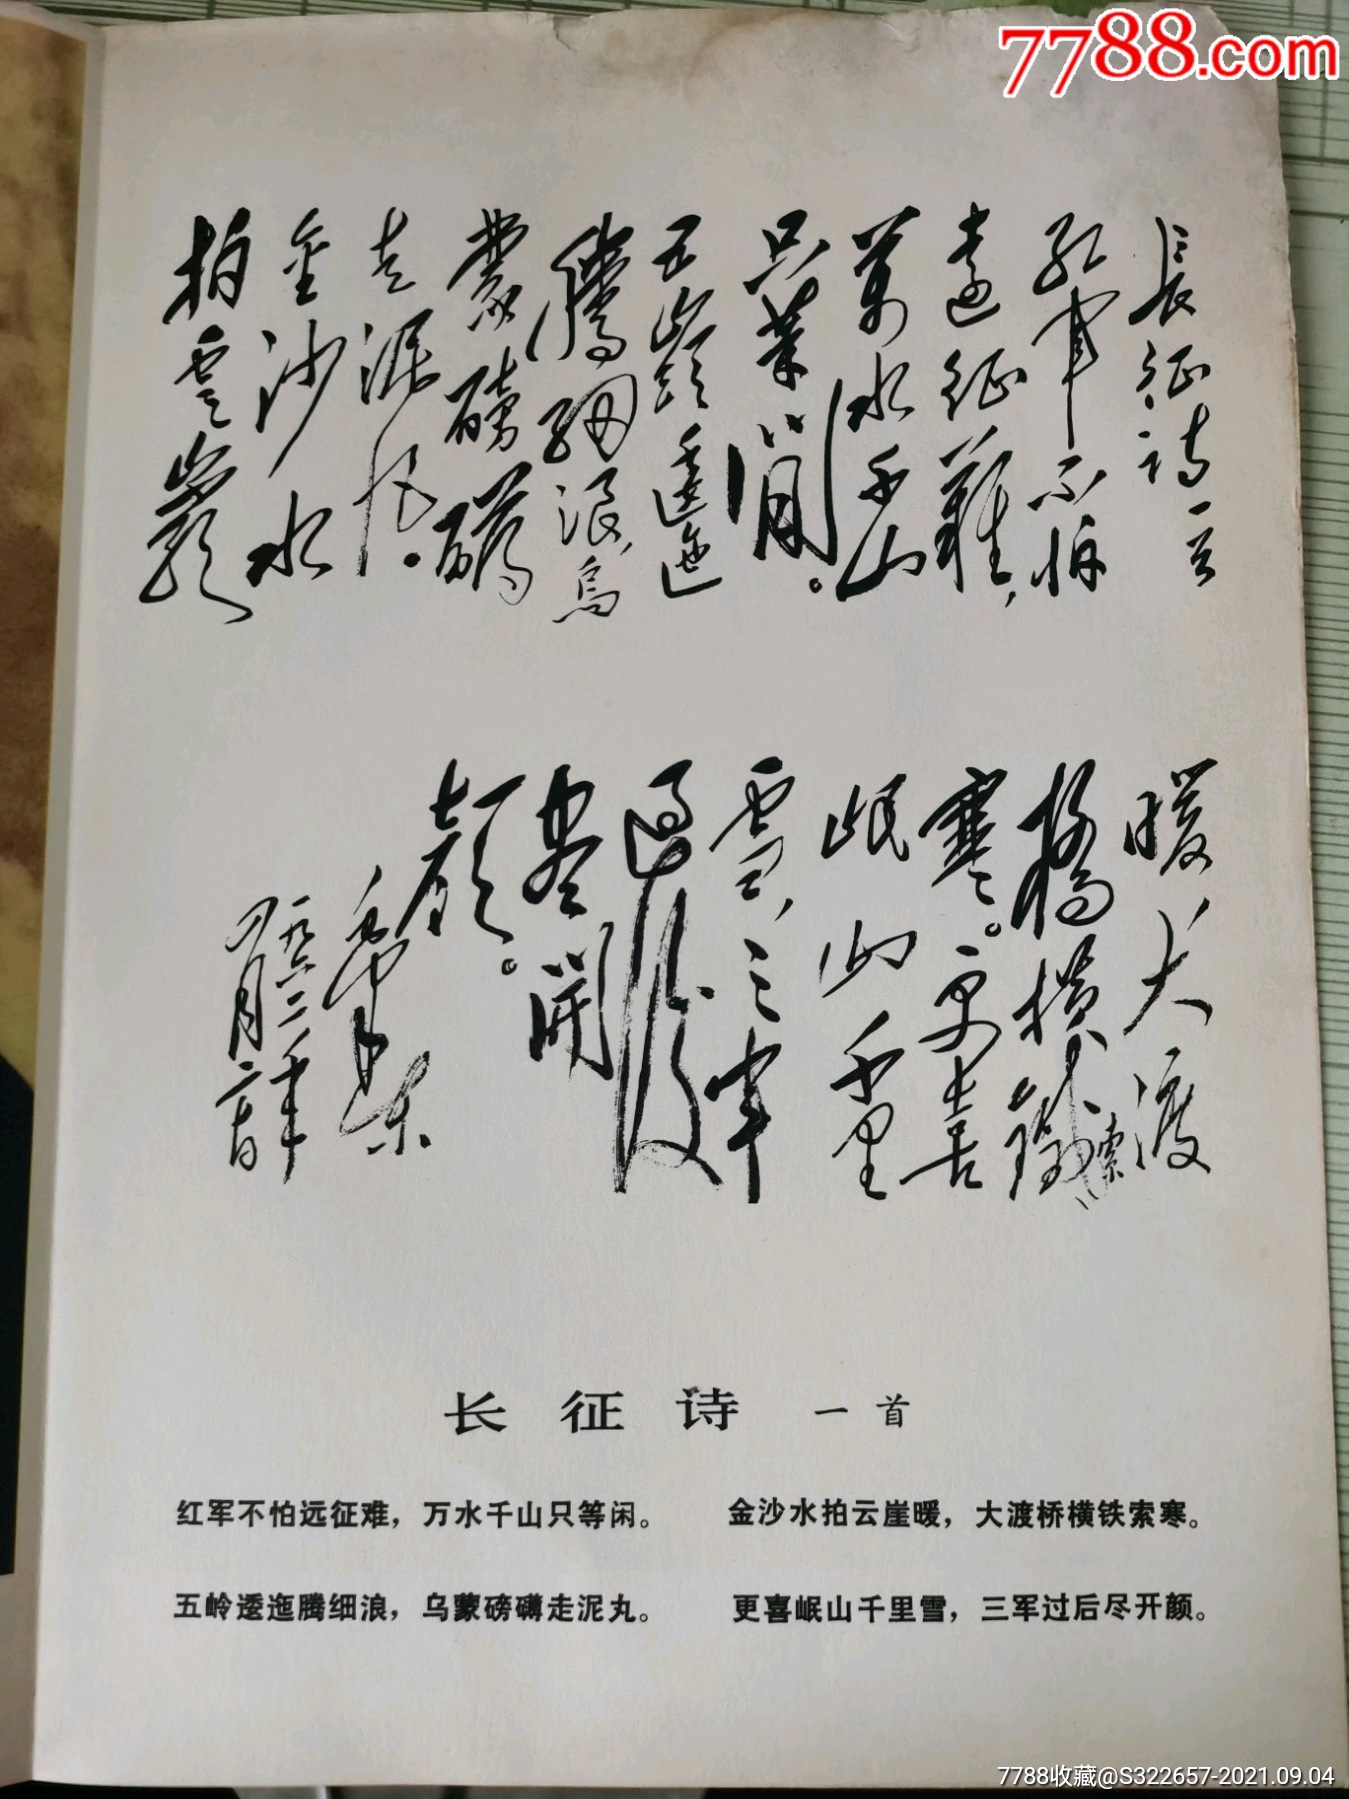 7788.com
長征诗一首
红军不怕
遠征難，
萬水千山
只等閒。
五嶺逶迤
腾细浪，烏
蒙磅礴
走泥丸。
金沙水
拍雲崖
暖大渡
橋横鐵索
寒。更喜
岷山千里
雪，三军
過後
盡開
顔。
毛泽东
一九六二年
四月二十日
长征诗 一首
红军不怕远征难，万水千山只等闲。
五岭逶迤腾细浪，乌蒙磅礴走泥丸。
金沙水拍云崖暖，大渡桥横铁索寒。
更喜岷山千里雪，三军过后尽开颜。
7788收藏@S322657-2021.09.04